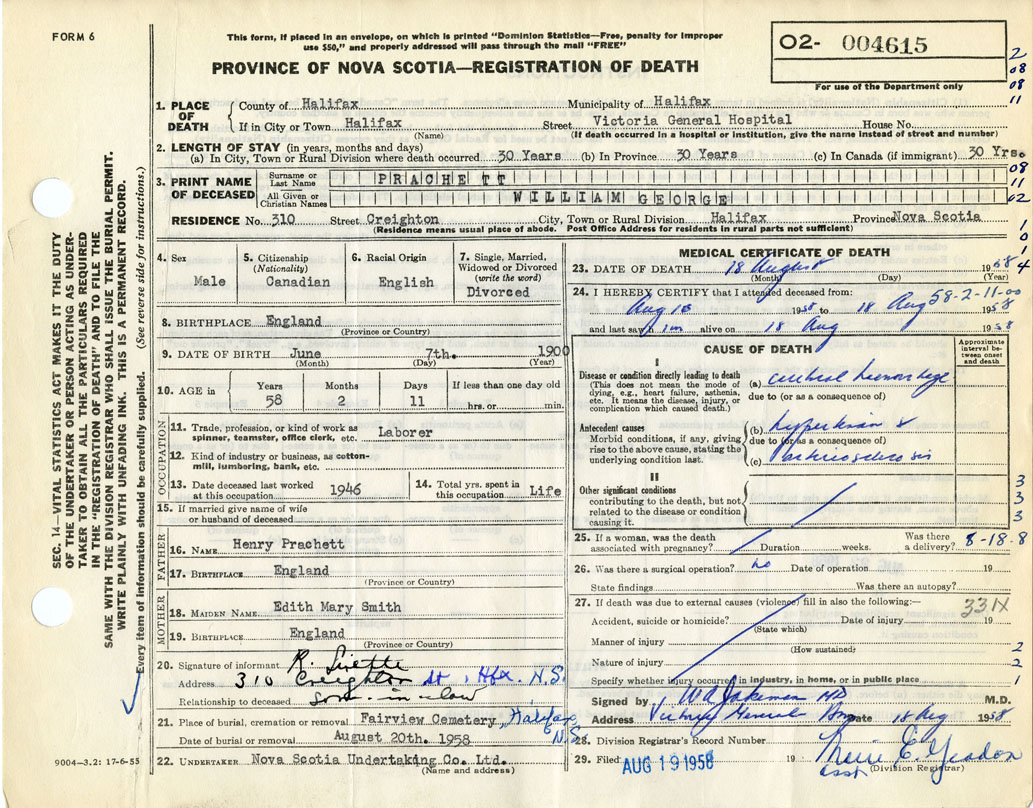 FORM 6
This form, if placed in an envelope, on which is printed "Dominion Statistics—Free, penalty for improper
use $50," and properly addressed will pass through the mail "FREE"
O2- 004615
For use of the Department only
PROVINCE OF NOVA SCOTIA—REGISTRATION OF DEATH
2
08
08
11
1. PLACE OF DEATH
County of Halifax Municipality of Halifax
If in City or Town Halifax Street Victoria General Hospital House No.
(Name) (If death occurred in a hospital or institution, give the name instead of street and number)
2. LENGTH OF STAY (in years, months and days)
(a) In City, Town or Rural Division where death occurred 30 Years (b) In Province 30 Years (c) In Canada (if immigrant) 30 Yrs.
08
11
02
3. PRINT NAME OF DECEASED
Surname or Last Name PRACHETT
All Given or Christian Names WILLIAM GEORGE
RESIDENCE No. 310 Street Creighton City, Town or Rural Division Halifax Province Nova Scotia
(Residence means usual place of abode. Post Office Address for residents in rural parts not sufficient)
1
0
4
4. Sex
Male
5. Citizenship (Nationality)
Canadian
6. Racial Origin
English
7. Single, Married, Widowed or Divorced (write the word)
Divorced
8. BIRTHPLACE England
(Province or Country)
9. DATE OF BIRTH June 7th. 1900
(Month) (Day) (Year)
10. AGE in
Years Months Days If less than one day old
58 2 11 hrs. or min.
OCCUPATION
11. Trade, profession, or kind of work as spinner, teamster, office clerk, etc. Laborer
12. Kind of industry or business, as cotton-mill, lumbering, bank, etc.
13. Date deceased last worked at this occupation 1946
14. Total yrs. spent in this occupation Life
15. If married give name of wife or husband of deceased
FATHER
16. NAME Henry Prachett
17. BIRTHPLACE England
(Province or Country)
MOTHER
18. MAIDEN NAME Edith Mary Smith
19. BIRTHPLACE England
(Province or Country)
20. Signature of informant R.
Address 310 Creighton St, Hfx. N.S.
Relationship to deceased Son-in-law
21. Place of burial, cremation or removal Fairview Cemetery, Halifax N.S.
Date of burial or removal August 20th. 1958
22. UNDERTAKER Nova Scotia Undertaking Co. Ltd.
(Name and address)
MEDICAL CERTIFICATE OF DEATH
23. DATE OF DEATH 18 August 1958
(Month) (Day) (Year)
24. I HEREBY CERTIFY that I attended deceased from:
58-2-11-00
Aug 18 1958 to 18 Aug 1958
and last saw him alive on 18 Aug 1958
CAUSE OF DEATH
Approximate interval between onset and death
I
Disease or condition directly leading to death
(This does not mean the mode of dying, e.g., heart failure, asthenia, etc. It means the disease, injury, or complication which caused death.)
(a) cerebral hemorrhage
due to (or as a consequence of)
Antecedent causes
Morbid conditions, if any, giving rise to the above cause, stating the underlying condition last.
(b) hypertension &
due to (or as a consequence of)
(c) arteriosclerosis
II
Other significant conditions
contributing to the death, but not related to the disease or condition causing it.
3
3
3
25. If a woman, was the death associated with pregnancy? Duration weeks. Was there a delivery?
8-18-8
26. Was there a surgical operation? no Date of operation 19
State findings Was there an autopsy?
27. If death was due to external causes (violence) fill in also the following:—
331X
Accident, suicide or homicide? Date of injury 19
(State which)
Manner of injury
(How sustained)
Nature of injury
Specify whether injury occurred in industry, in home, or in public place
2
2
1
Signed by W A Jakeman MD M.D.
Address Victoria General Hosp Date 18 Aug 1958
28. Division Registrar's Record Number
29. Filed AUG 19 1958 19
asst (Division Registrar)
SEC. 14—VITAL STATISTICS ACT MAKES IT THE DUTY
OF THE UNDERTAKER OR PERSON ACTING AS UNDER-
TAKER TO OBTAIN ALL THE PARTICULARS REQUIRED
IN THE "REGISTRATION OF DEATH" AND TO FILE THE
SAME WITH THE DIVISION REGISTRAR WHO SHALL ISSUE THE BURIAL PERMIT.
WRITE PLAINLY WITH UNFADING INK. THIS IS A PERMANENT RECORD.
Every item of information should be carefully supplied. (See reverse side for instructions.)
9004-3.2: 17-6-55